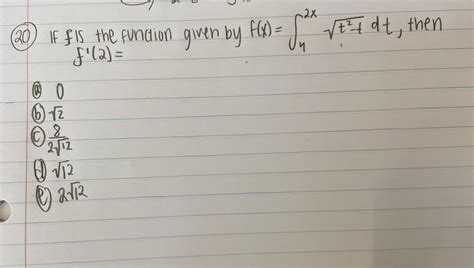 20 IF f IS the function given by f(x) = ∫₄²ˣ √t²-t dt, then
f'(2) =
a 0
b √2
c 8/2√12
d √12
e 2√12